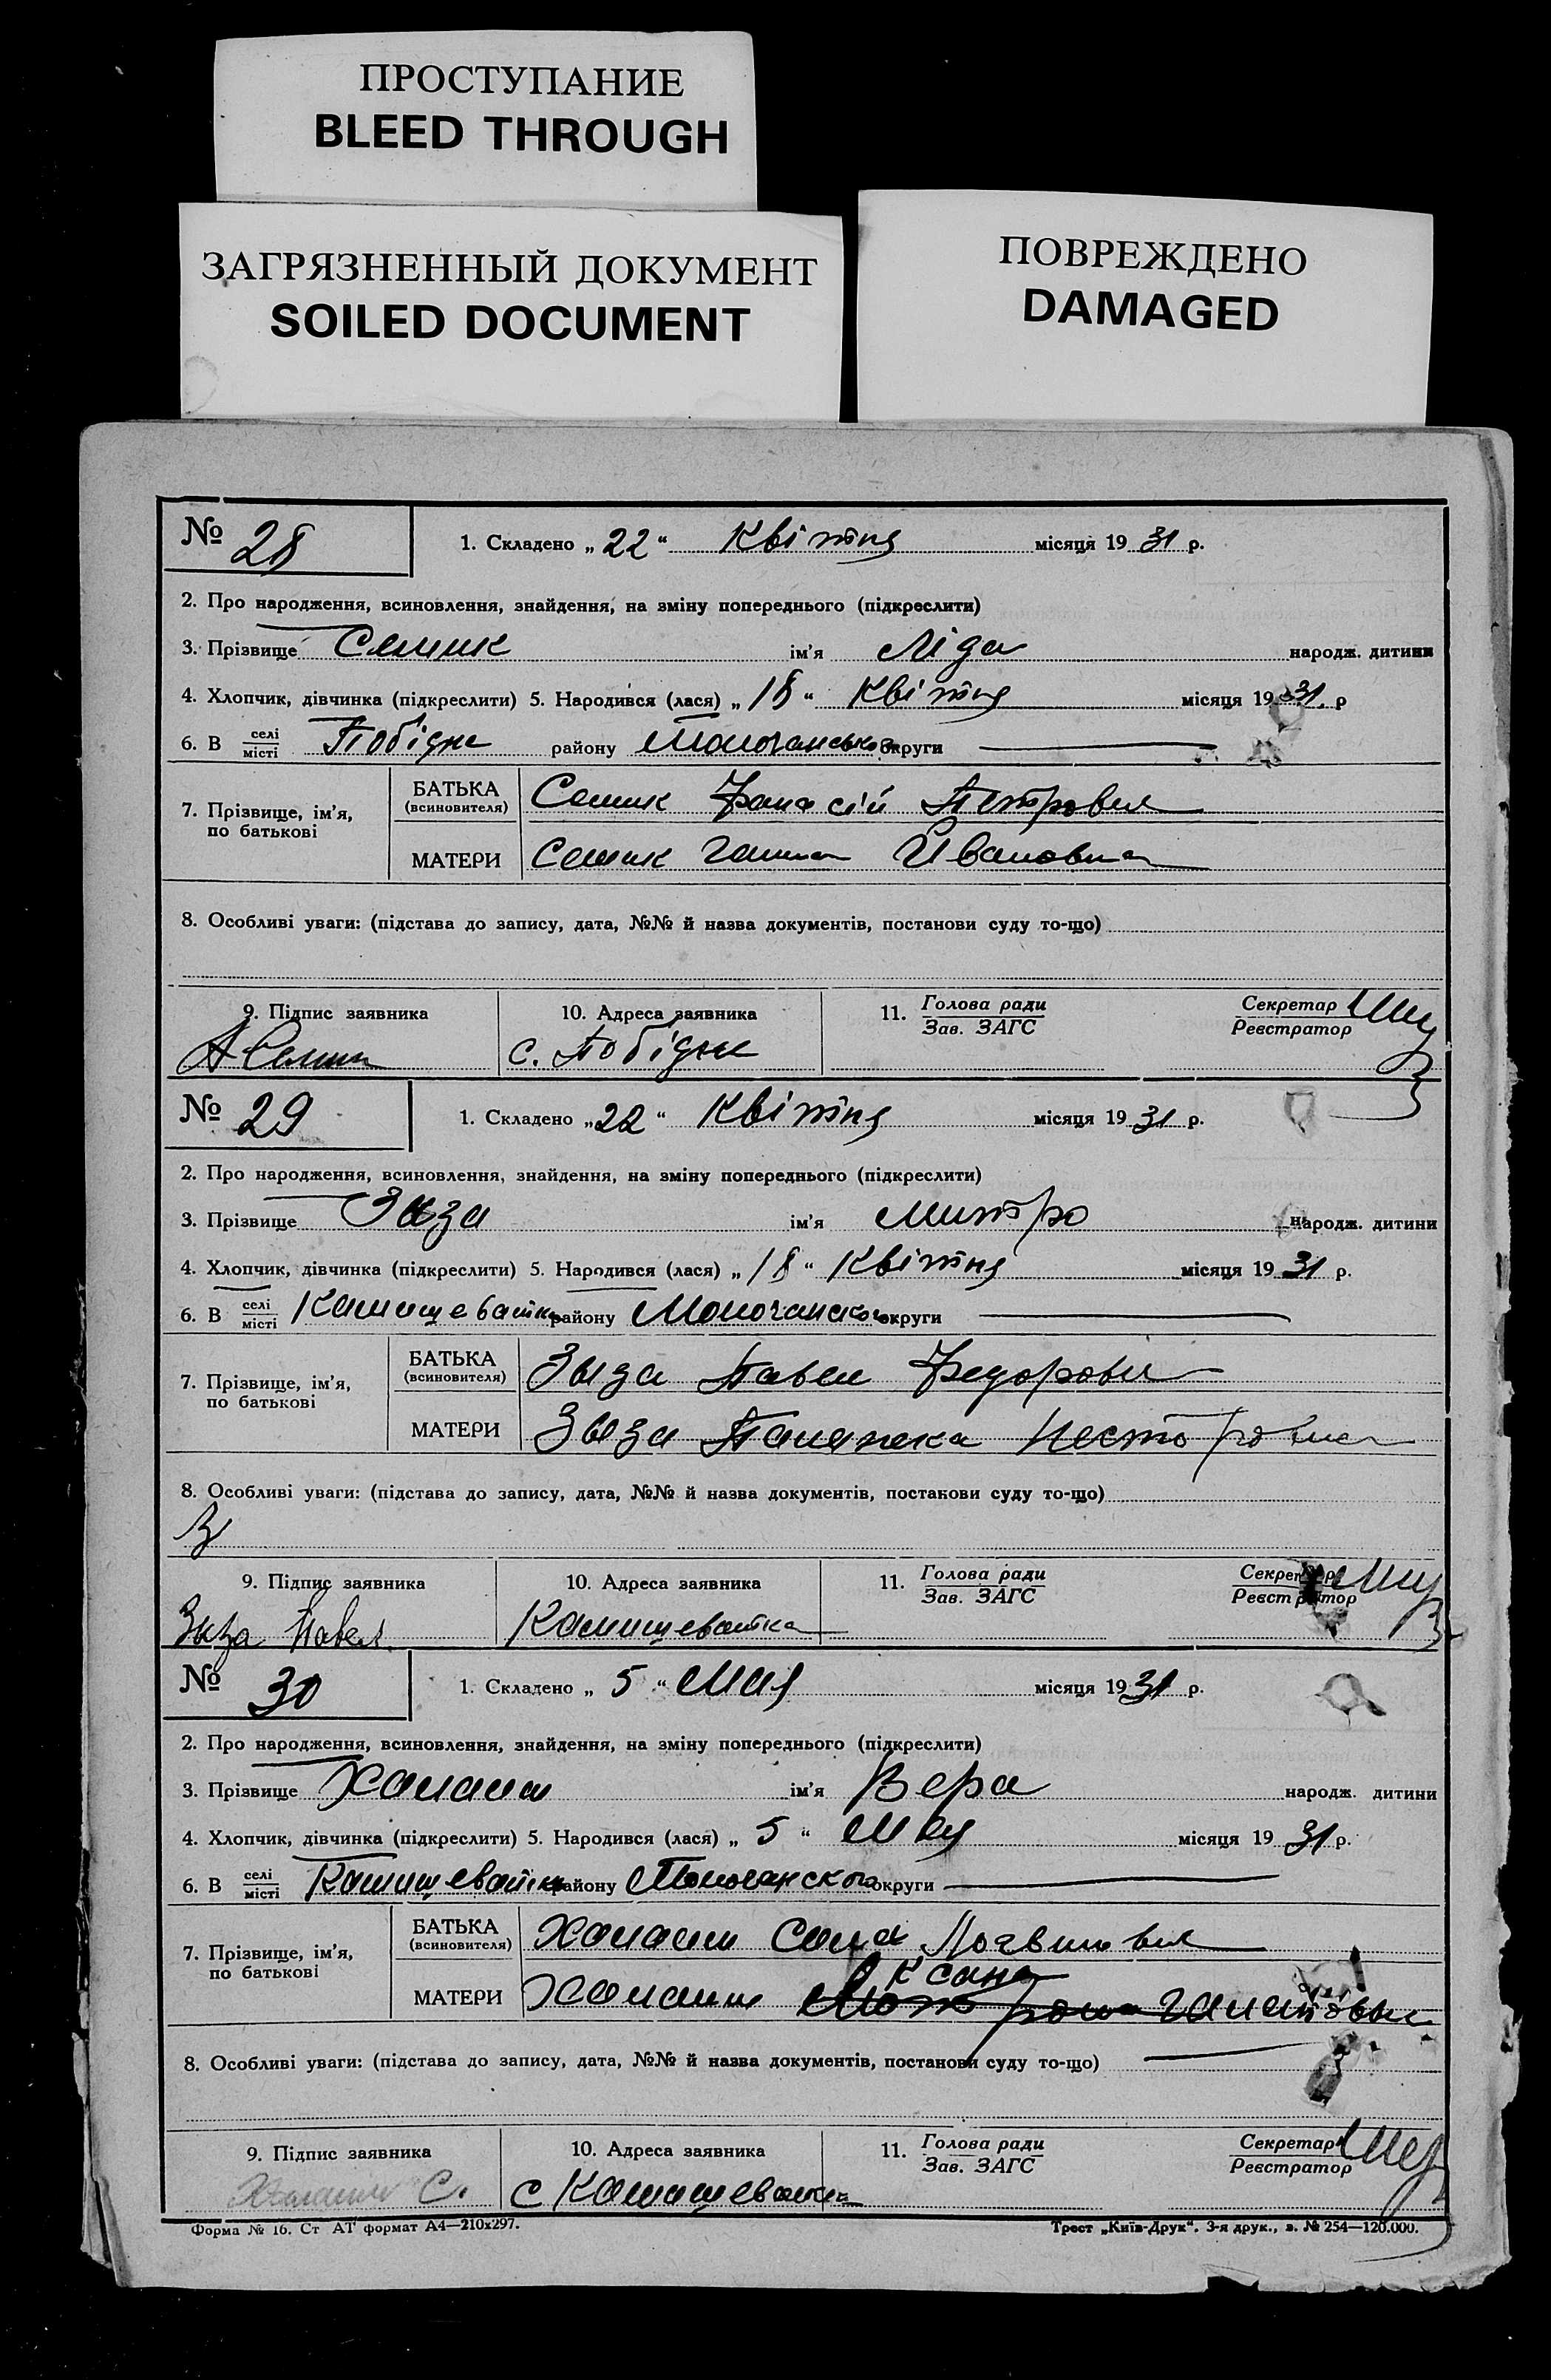 ПРОСТУПАНИЕ
BLEED THROUGH
ЗАГРЯЗНЕННЫЙ ДОКУМЕНТ
SOILED DOCUMENT
ПОВРЕЖДЕНО
DAMAGED
№ 28 1. Складено „ 22 “ Квітня місяця 19 31 р.
2. Про народження, всиновлення, знайдення, на зміну попереднього (підкреслити)
3. Прізвище Семик ім’я Ліда народж. дитини
4. Хлопчик, дівчинка (підкреслити) 5. Народився (лася) „ 18 “ Квітня місяця 19 31. р
6. В селі місті Побідне району округи
7. Прізвище, ім’я, по батькові
БАТЬКА (всиновителя) Семик Фанасій Петрович
МАТЕРИ Семик Ганна Ивановна
8. Особливі уваги: (підстава до запису, дата, №№ й назва документів, постанови суду то-що)
9. Підпис заявника 10. Адреса заявника 11. Голова ради Зав. ЗАГС Секретар Реєстратор
с. Побідне
№ 29 1. Складено „ 22 “ Квітня місяця 19 31 р.
2. Про народження, всиновлення, знайдення, на зміну попереднього (підкреслити)
3. Прізвище Зиза ім’я Митро народж. дитини
4. Хлопчик, дівчинка (підкреслити) 5. Народився (лася) „ 18 “ Квітня місяця 19 31 р.
6. В селі місті Камишеватка району округи
7. Прізвище, ім’я, по батькові
БАТЬКА (всиновителя) Зыза Павел Федорович
МАТЕРИ Зыза Несторовна
8. Особливі уваги: (підстава до запису, дата, №№ й назва документів, постанови суду то-що)
9. Підпис заявника 10. Адреса заявника 11. Голова ради Зав. ЗАГС Секретар Реєстратор
Зыза Павел Камишеватка
№ 30 1. Складено „ 5 “ Мая місяця 19 31 р.
2. Про народження, всиновлення, знайдення, на зміну попереднього (підкреслити)
3. Прізвище ім’я Вера народж. дитини
4. Хлопчик, дівчинка (підкреслити) 5. Народився (лася) „ 5 “ Мая місяця 19 31 р.
6. В селі місті Камишеватка району округи
7. Прізвище, ім’я, по батькові
БАТЬКА (всиновителя)
МАТЕРИ
8. Особливі уваги: (підстава до запису, дата, №№ й назва документів, постанови суду то-що)
9. Підпис заявника 10. Адреса заявника 11. Голова ради Зав. ЗАГС Секретар Реєстратор
С. с Камишеватка
Форма № 16. Ст АТ формат А4—210х297. Трест „Київ-Друк“. 3-я друк., з. № 254—120.000.